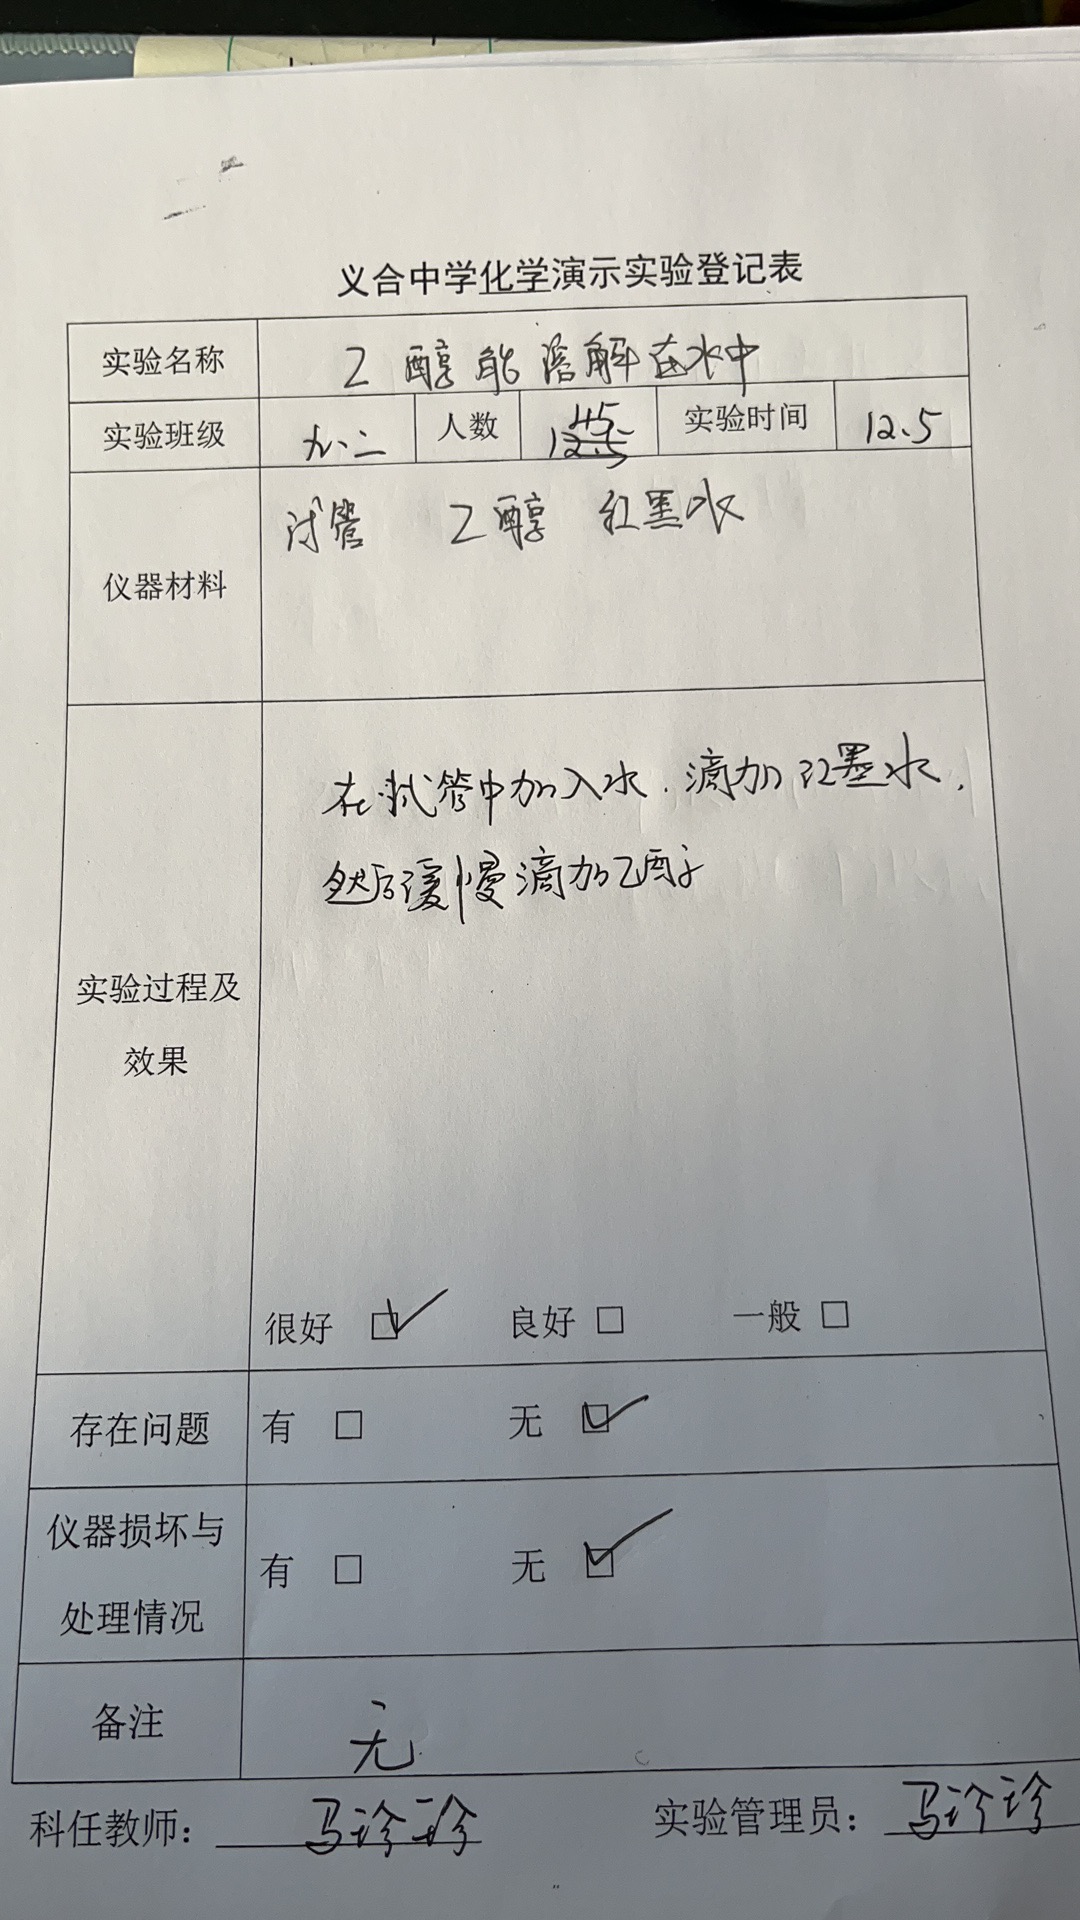 义合中学化学演示实验登记表
实验名称 乙醇能溶解在水中
实验班级 九.二 人数 45 实验时间 12.5
仪器材料 试管 乙醇 红墨水
在试管中加入水.滴加红墨水,
然后缓慢滴加乙醇
实验过程及
效果
很好 ☑ 良好 □ 一般 □
存在问题 有 □ 无 ☑
仪器损坏与
处理情况
有 □ 无 ☑
备注 无
科任教师: 马珍珍 实验管理员: 马珍珍